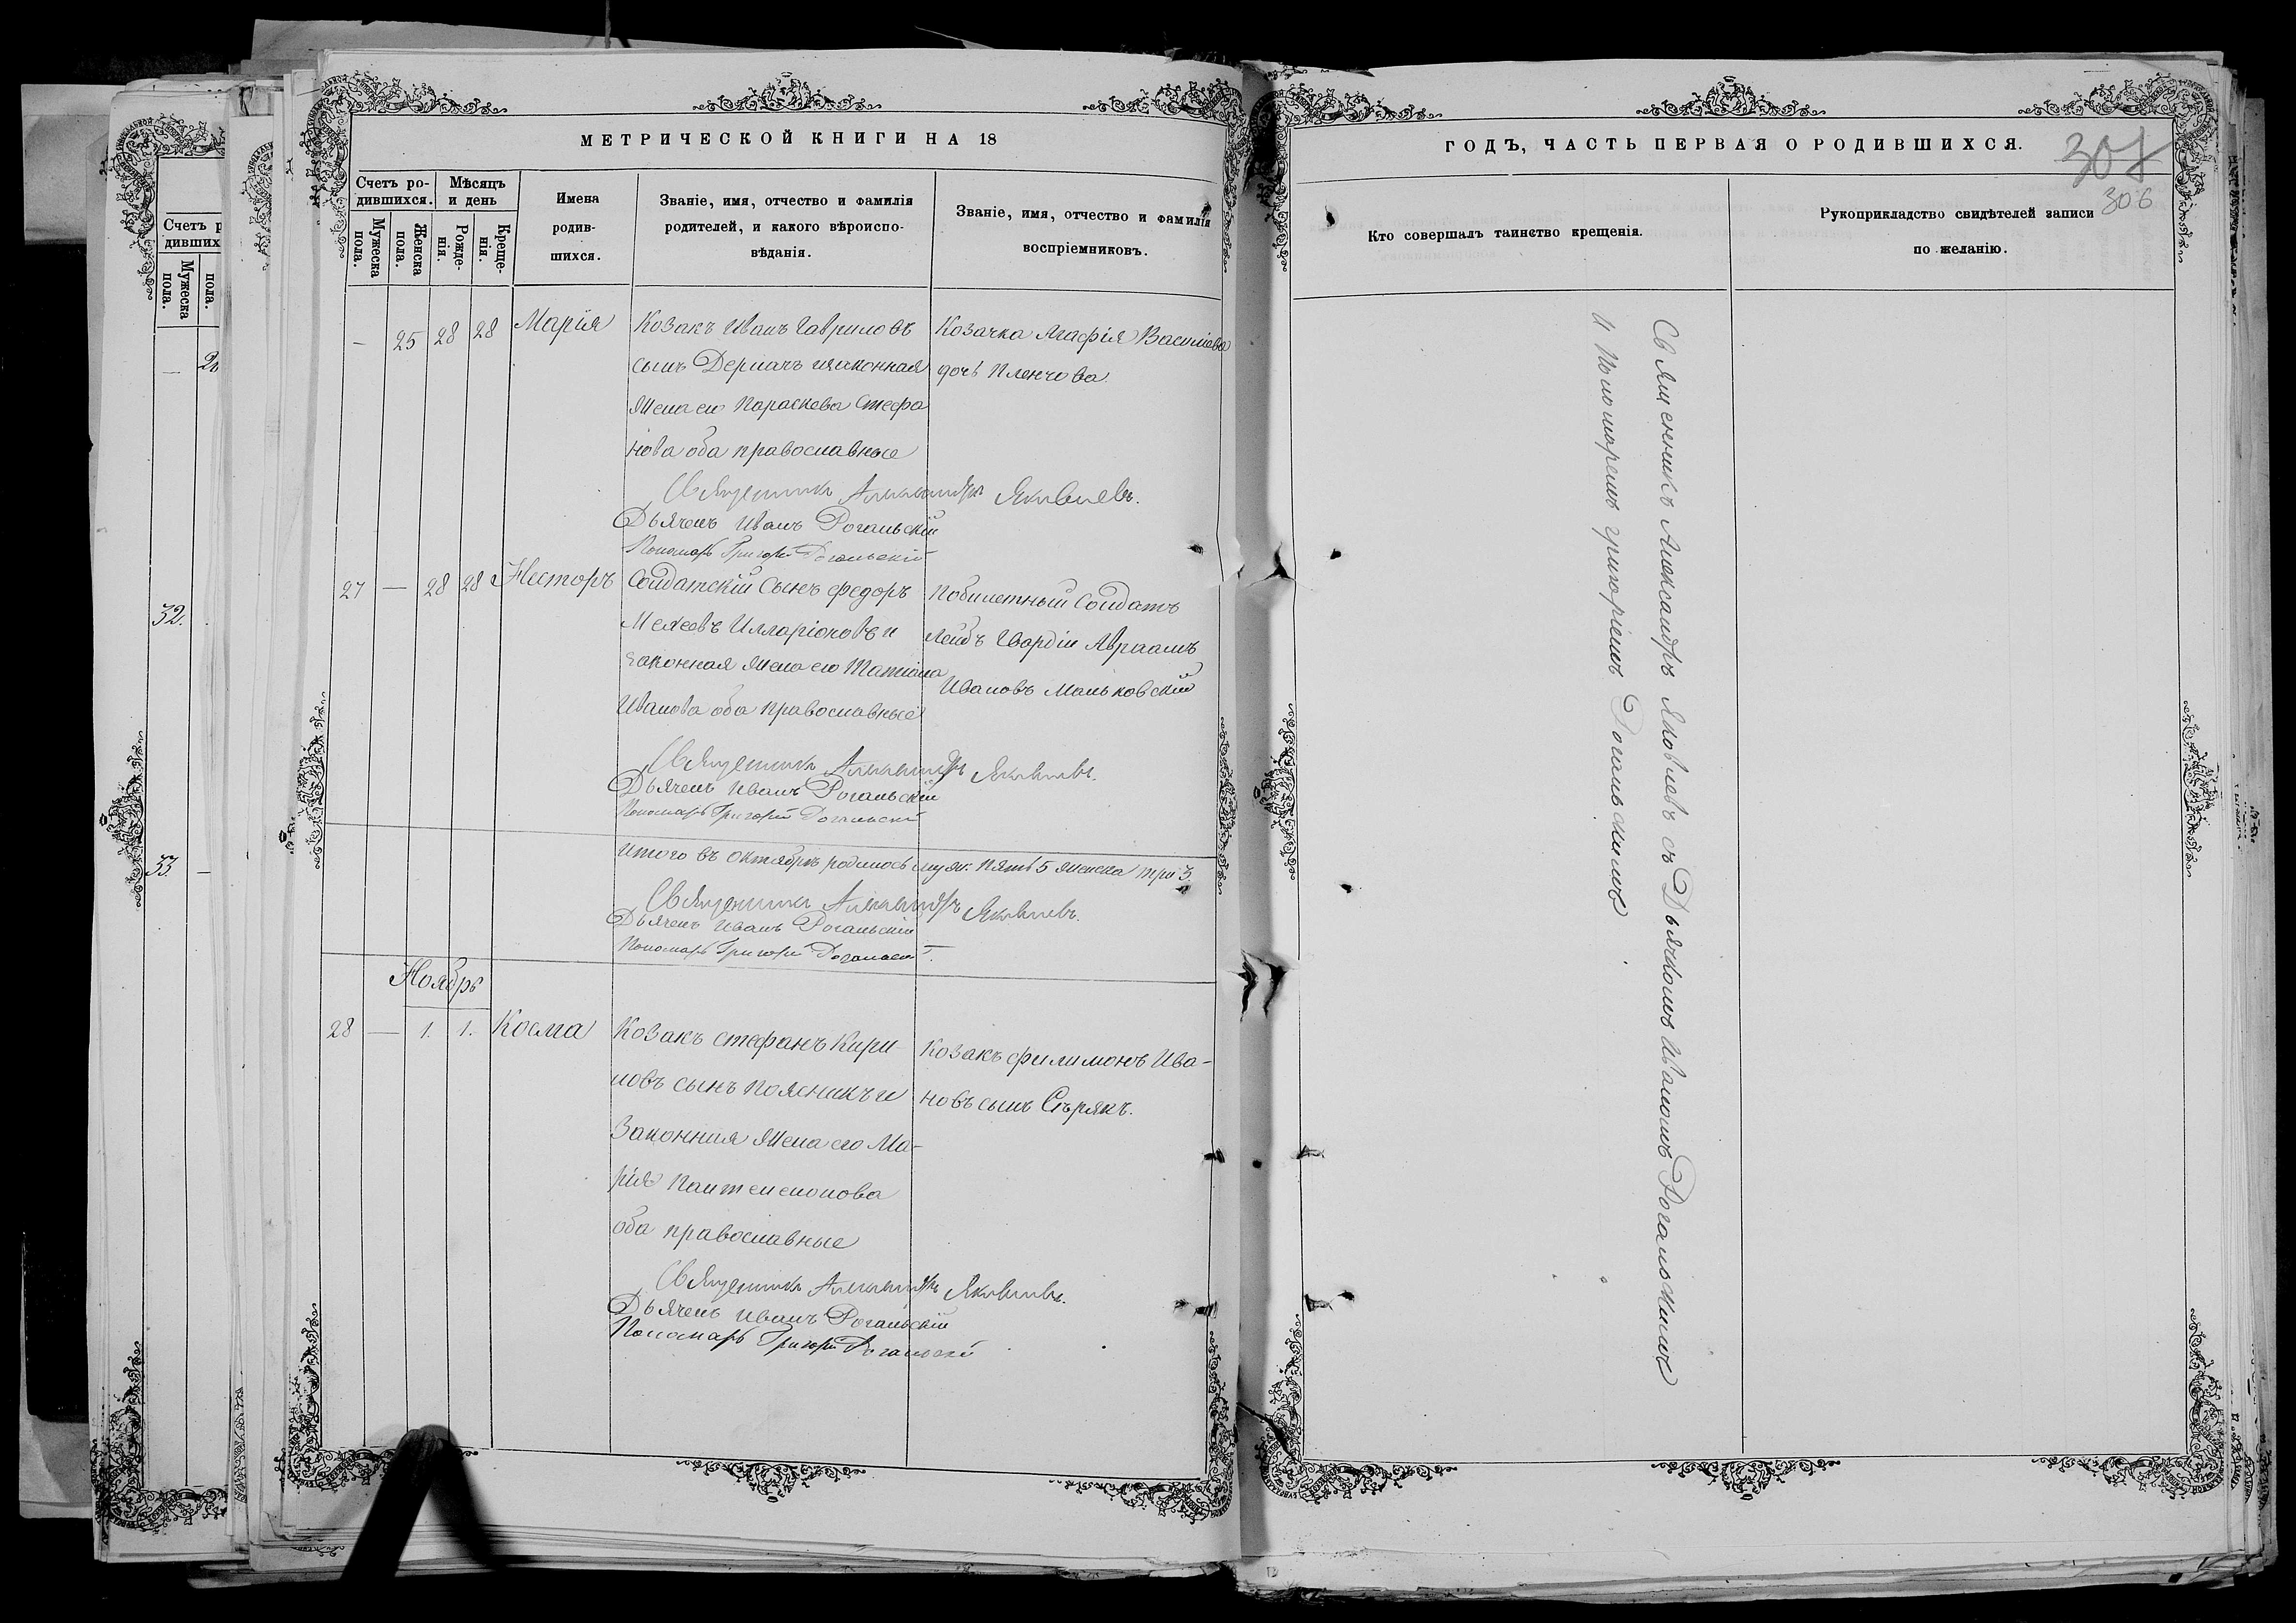 МЕТРИЧЕСКОЙ КНИГИ НА 18
Счетъ ро-
дившихся.
Мѣсяцъ
и день
Мужеска
пола.
Женска
пола.
Рожде-
нія.
Креще-
нія.
Имена
родив-
шихся.
Званіе, имя, отчество и фамилія
родителей, и какого вѣроиспо-
вѣданія.
Званіе, имя, отчество и фамилія
воспріемниковъ.
— 25 28 28 Марія
Козакъ Иванъ Гавриловъ
сынъ Дермачъ и законная
жена его Параскева Стефа
нова оба православные
Козачка Агафія Василіева
дочь Пленчова
Священникъ Александръ Яковлевъ.
Дьячекъ Иванъ Рогальскій
Пономарь Григорій Рогальскій
27 — 28 28 Несторъ
Солдатскій Сынъ Федоръ
Мехеевъ Илларіоновъ и
законная жена его Татіана
Иванова оба православные
Побилетный Солдатъ
Лейбъ Гвардіи Авраамъ
Ивановъ Маньковскій
Священникъ Александръ Яковлевъ.
Дьячекъ Иванъ Рогальскій
Пономарь Григорій Рогальскій
Итого въ октябрѣ родилось муж: пять 5 женска три 3
Священникъ Александръ Яковлевъ.
Дьячекъ Иванъ Рогальскій
Пономарь Григорій Рогальскій
Ноябрь
28 — 1. 1. Косма
Козакъ Стефанъ Кири-
ловъ сынъ Поясникъ и
Законная жена его Ма-
рія Пантелемонова
оба православные
Козакъ Филимонъ Ива-
новъ сынъ Сѣрякъ.
Священникъ Александръ Яковлевъ.
Дьячекъ Иванъ Рогальскій
Пономарь Григорій Рогальскій
ГОДЪ, ЧАСТЬ ПЕРВАЯ О РОДИВШИХСЯ.
307
306
Кто совершалъ таинство крещенія.
Рукоприкладство свидѣтелей записи
по желанію.
Священникъ Александръ Яковлевъ съ Дьячкомъ Иваномъ Рогальскимъ
и Пономаремъ Григоріемъ Рогальскимъ
Счетъ р
дивших
Мужеска
пола.
пола.
32.
33